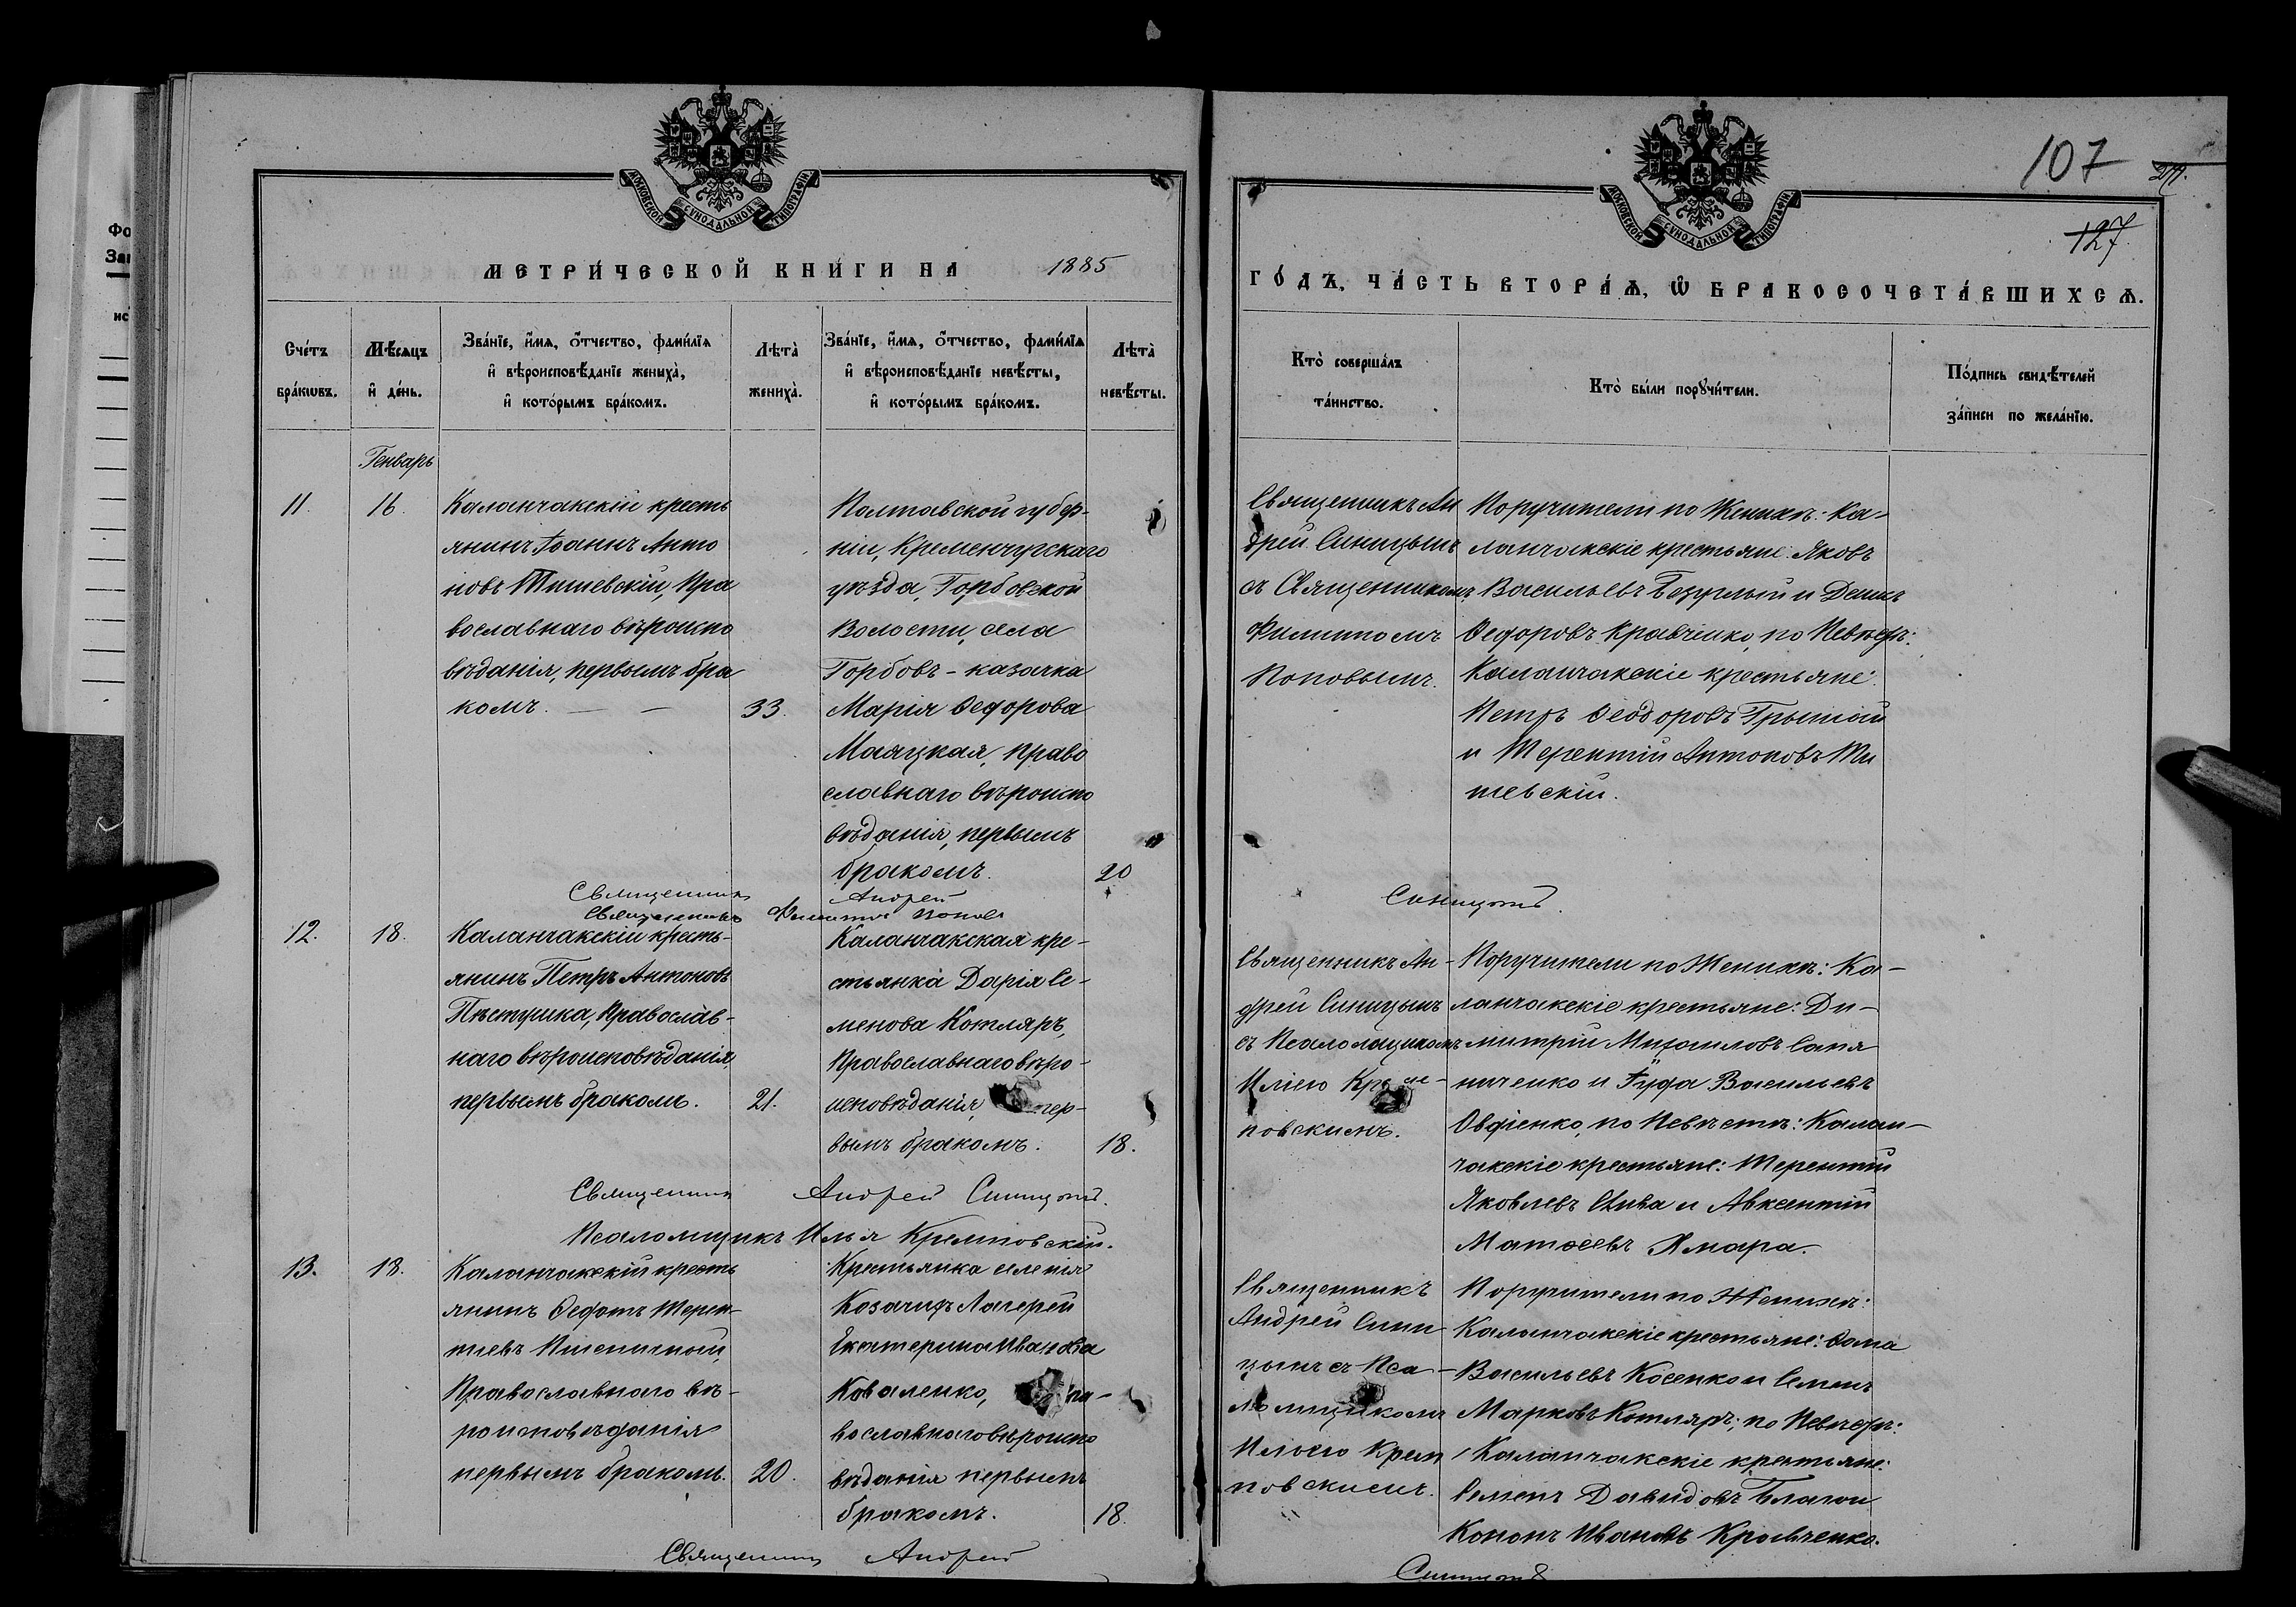 МОСКОВСКОЙ СУНОДАЛЬНОЙ ТИПОГРАФІИ
МЕТРИ́ЧЕСКОЙ КНИ́ГИ НА 1885
Сче́тъ бра́ковъ.
Мѣ́сяцъ и де́нь.
Зва́нїе, и҆́мя, ѻ҆́тчество, фами́лїя
и҆ вѣроисповѣ́данїе жениха̀,
и҆ кото́рымъ бра́комъ.
Лѣта̀ жениха̀.
Зва́нїе, и҆́мя, ѻ҆́тчество, фами́лїя
и҆ вѣроисповѣ́данїе невѣ́сты,
и҆ кото́рымъ бра́комъ.
Лѣта̀ невѣ́сты.
Генварь
11.
16.
Каланчакскій кресть
янинъ Іоаннъ Анто
новъ Тишевскій, Пра
вославнаго вѣроиспо
вѣданія, первымъ бра
комъ. — —
33.
Полтавской губер-
ніи, Кременчугскаго
уѣзда, Горбовской
Волости, села
Горбовъ - казачка
Марія Ѳедорова
Маяцкая, право
славнаго вѣроиспо
вѣданія, первымъ
бракомъ.
20
Священникъ Андрей
Священникъ Филиппъ Поповъ
12.
18.
Каланчакскій кресть-
янинъ Петръ Антоновъ
Пѣстушка, Православ-
наго вѣроисповѣданія,
первымъ бракомъ.
21.
Каланчакская кре-
стьянка Дарія Се-
менова Котляръ,
Православнаго вѣро-
исповѣданія, пер-
вымъ бракомъ.
18.
Священникъ Андрей Синицынъ.
Псаломщикъ Илья Кремповскій.
13.
18.
Каланчакскій кресть
янинъ Ѳедотъ Терен-
тіевъ Пшеничный,
Православнаго вѣ-
роисповѣданія
первымъ бракомъ.
20.
Крестьянка селенія
Козачихъ Лагерей
Екатерина Иванова
Коваленко, Пра-
вославнаго вѣроиспо
вѣданія первымъ
бракомъ.
18.
Священникъ Андрей
107
127.
МОСКОВСКОЙ СУНОДАЛЬНОЙ ТИПОГРАФІИ
ГО́ДЪ, ЧА́СТЬ ВТОРА́Ѧ, Ѡ҆ БРАКОСОЧЕТА́ВШИХСѦ.
Кто̀ соверша́лъ
та́инство.
Кто̀ бы́ли порꙋчи́тели.
По́дпись свидѣ́телей
за́писи по жела́нїю.
Священникъ Ан
дрей Синицынъ
съ Священникомъ
Филиппомъ
Поповымъ.
Поручители по Женихѣ: Ка-
ланчакскіе крестьяне: Яковъ
Васильевъ Безуглый и Демьянъ
Ѳедоровъ Кравченко, по Невѣстѣ:
Каланчакскіе крестьяне:
Петръ Ѳеодоровъ
и Терентій Антоновъ Ти
шевскій.
Синицынъ.
Священникъ Ан-
дрей Синицынъ
съ Псаломщикомъ
Иліею Крем-
повскимъ.
Поручители по Женихѣ: Ка-
ланчакскіе крестьяне: Ди-
митрій Михаиловъ Сапя
ниченко и Іуда Васильевъ
Овдіенко, по Невѣстѣ: Калан-
чакскіе крестьяне: Терентій
Яковлевъ Слива и Авксентій
Матѳеевъ Хмара.
Священникъ
Андрей Сини
цынъ съ Пса-
ломщикомъ
Ильею Крем
повскимъ.
Поручители по Женихѣ:
Каланчакскіе крестьяне: Ѳома
Васильевъ Косенко и Семенъ
Марковъ Котляръ, по Невѣстѣ:
Каланчакскіе крестьяне:
Семенъ Давидовъ Благой
Кононъ Ивановъ Кравченко.
Синицынъ